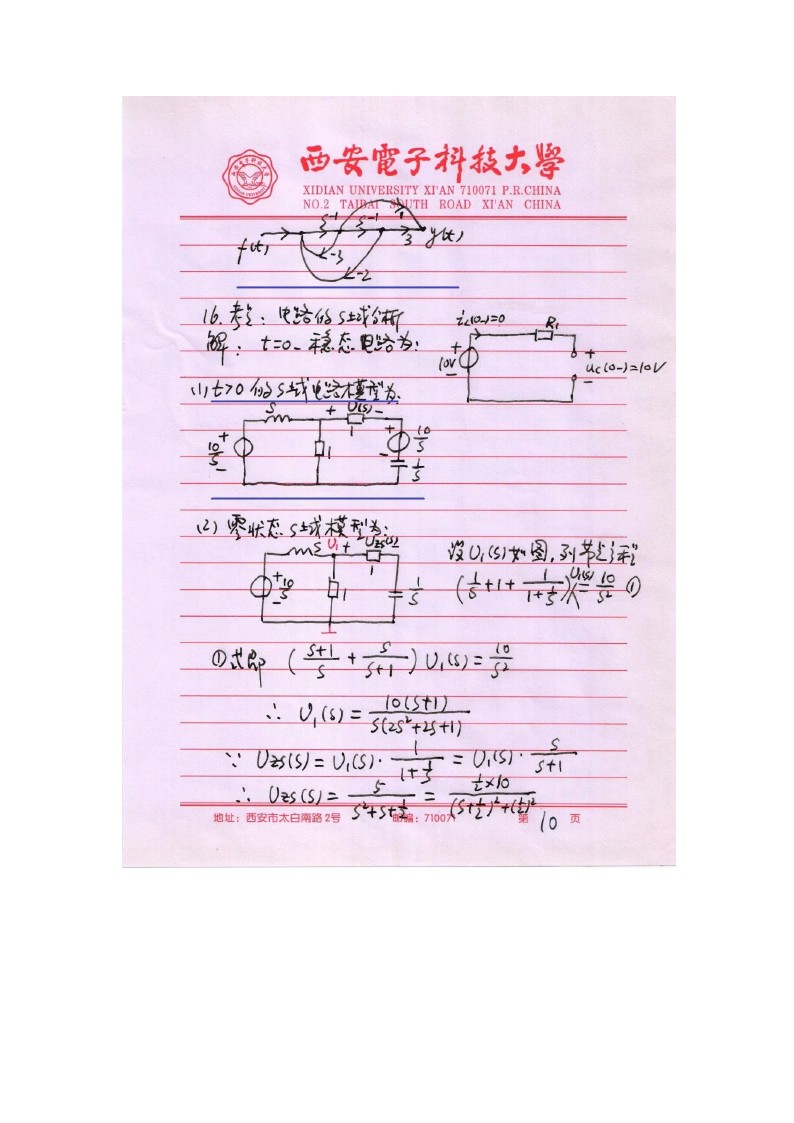 西安電子科技大學
XIDIAN UNIVERSITY XI'AN 710071 P.R.CHINA
NO.2 TAIBAI SOUTH ROAD XI'AN CHINA
f(t) s⁻¹ s⁻¹ 1 3 y(t)
-3
-2
16. 考点: 电路的S域分析
解: t=0_ 稳态电路为:
i_L(0-)=0 R₁
10V + - + u_C(0-)=10V -
(1) t>0 的S域电路模型为:
S + U(s) - 1
10/S + - 1 + 10/S - 1/S
(2) 零状态S域模型为:
S U₁ + Uzs(s) 1
+ 10/S - 1 1/S
设U₁(s)如图,列节点方程
(1/S+1+1/(1+1/S))U₁(s)=10/S² ①
①式即 ((S+1)/S + S/(S+1)) U₁(s) = 10/S²
∴ U₁(s) = 10(S+1)/(S(2S²+2S+1))
∵ Uzs(s) = U₁(s)·1/(1+1/S) = U₁(s)·S/(S+1)
∴ Uzs(s) = 5/(S²+S+½) = (½×10)/((S+½)²+(½)²)
地址：西安市太白南路2号 邮编：710071 第 10 页